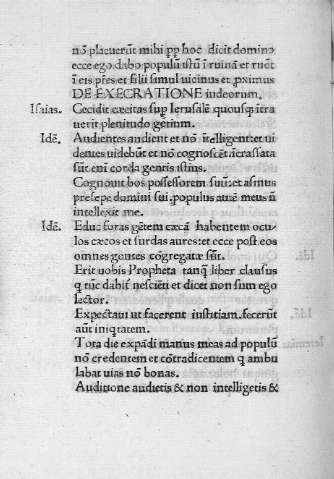 nō placuerūt mihi pp hoc dicit domino
ecce ego dabo populū istū ī ruinā et ruēt
ī eis pr̄es et filii simul uicinus et pximus
DE EXECRATIONE iudeorum.
Isaias. Cecidit cæcitas sup Ierusalē quousq ītra
uerit plenitudo gētium.
Idē. Audientes audient et nō ītelligent:et ui
dentes uidebūt et nō cognoscēt.īcrassata
sūt eni corda gentis istius.
Cognouit bos possessorem suū:et asinus
presepe domini sui.populus autē meus n̄
intellexit me.
Idē. Educ foras gētem cæcā habentem ocu
los cæcos et surdas aures:et ecce post eos
omnes gentes cōgregatæ sūt.
Erit uobis Propheta tanq liber clausus
q tūc dabit nesciēti et dicet non sum ego
lector.
Expectaui ut facerent iustitiam.fecerūt
aūt iniqtatem.
Tota die expādi manus meas ad populū
nō credentem et cōtradicentem q ambu
labat uias nō bonas.
Auditione audietis & non intelligetis &